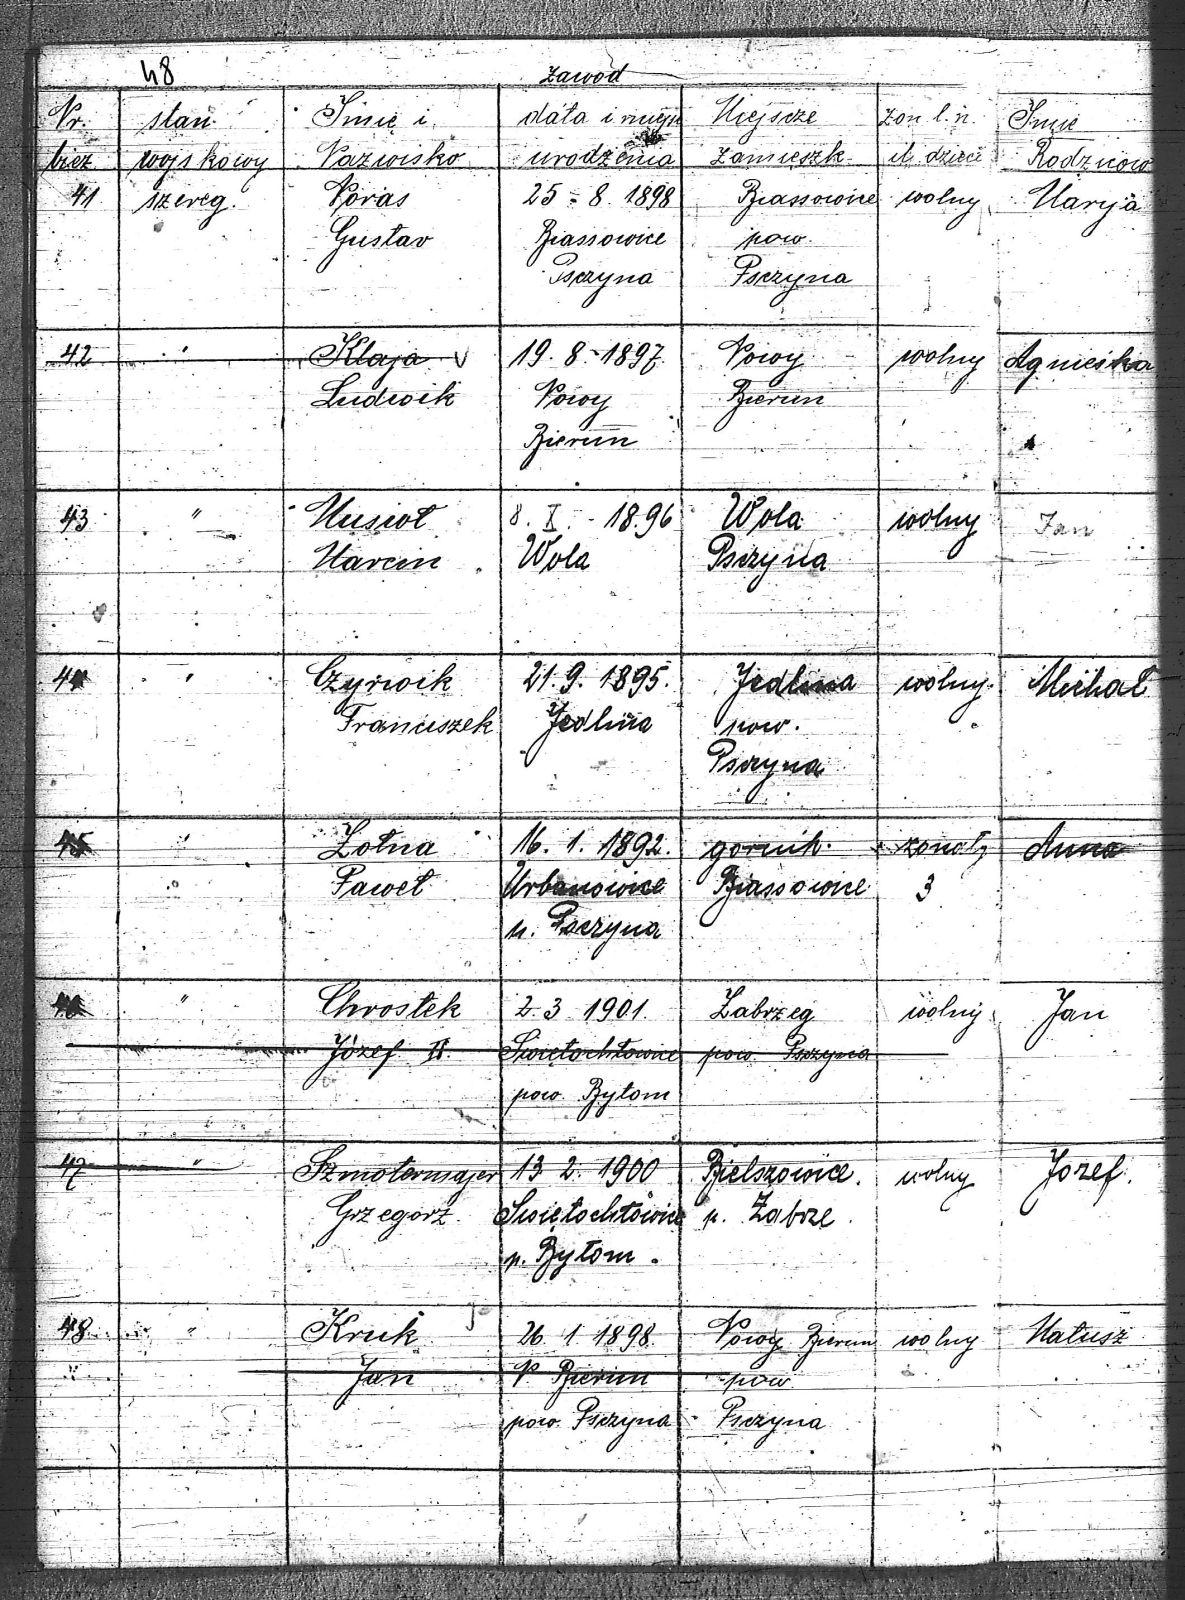 48
zawód
Nr. stan Imię i data i miejs Miejscze żon l. n. Imię
bież wojskowy Nazwisko urodzenia zamieszk. il. dzieci Rodziców
41 szereg. Noras 25-8. 1898 Biassowice wolny Marija
Gustav Biassowice pow.
Psczyna Psczyna
42 " Klaja 19. 8-1897 Nowy wolny Agnieska
Ludwik Nowy Bierun
Bierun
43 " Musioł 8. X. - 18.96 Wola wolny Jan
Marcin Wola Psczyna
44 " Czyrwik 21. 9. 1895. Jedlina wolny. Michał
Franciszek Jedlina pow.
Psczyna
45 " Zołna 16. 1. 1892. gornik. żonaty Anna
Paweł Urbanowice Biassowice 3
p. Psczyna
" Chrostek 2. 3 1901. Zabrzeg wolny Jan
Józef II. Świętochłowice pow. Psczyna
pow. Bytom
47 " Szmotermajer 13 2. 1900 Bielszowice. wolny Józef.
Grzegorz. Świętochłowice p. Zabrze.
p. Bytom.
48 " Kruk 26. 1 1898. Nowy Bierun wolny Matusz
Jan N Bierun pow
pow. Psczyna Psczyna